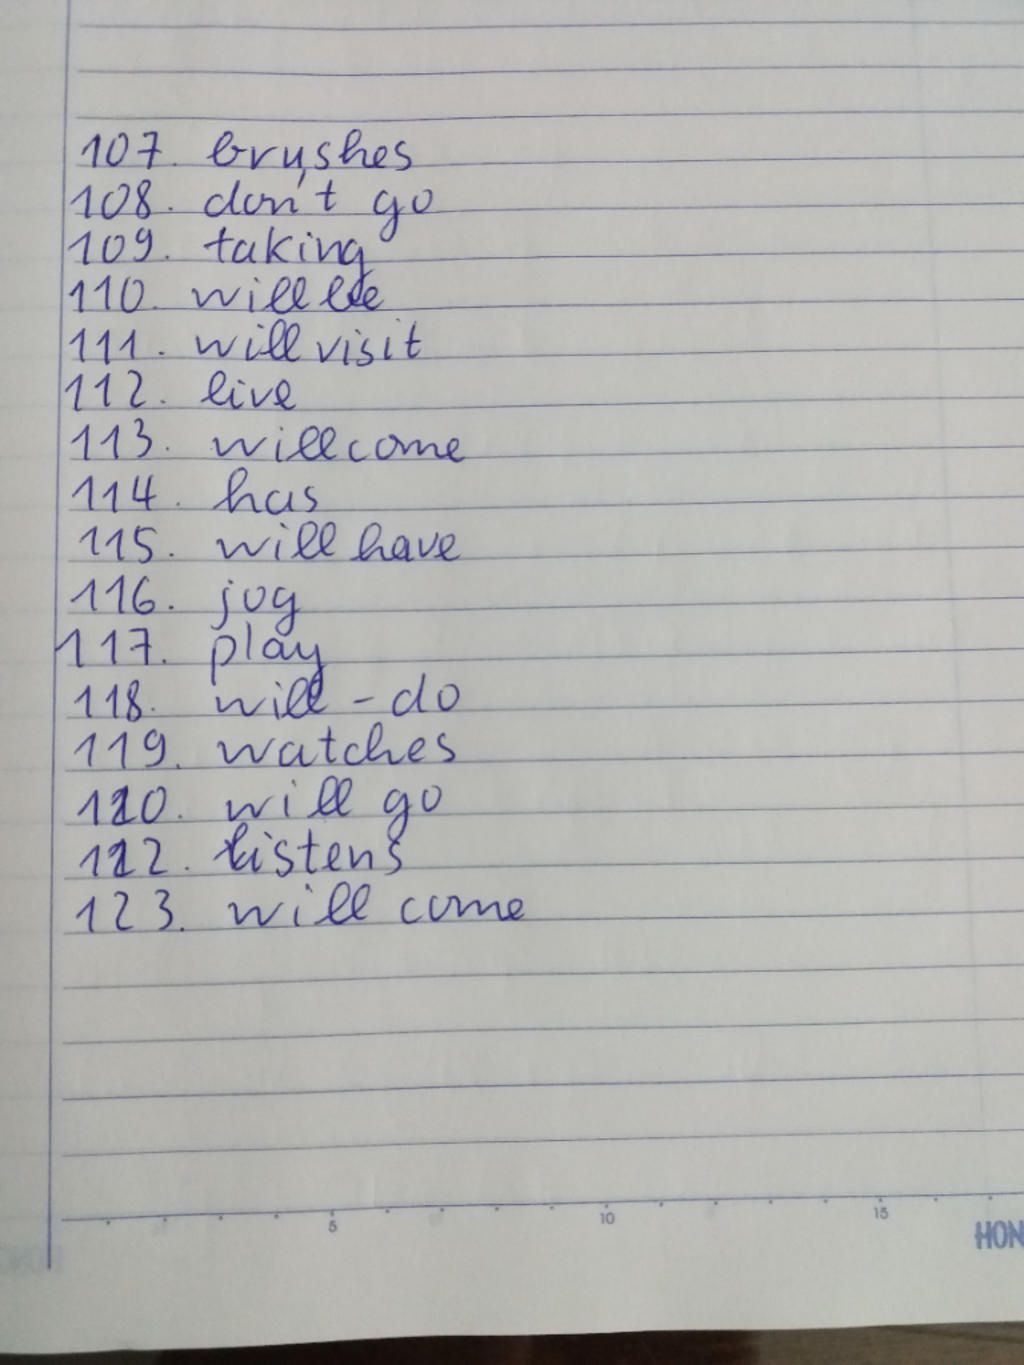 107. brushes
108. don't go
109. taking
110. will be
111. will visit
112. live
113. will come
114. has
115. will have
116. jog
117. play
118. will - do
119. watches
120. will go
122. listens
123. will come
5 10 15
HON